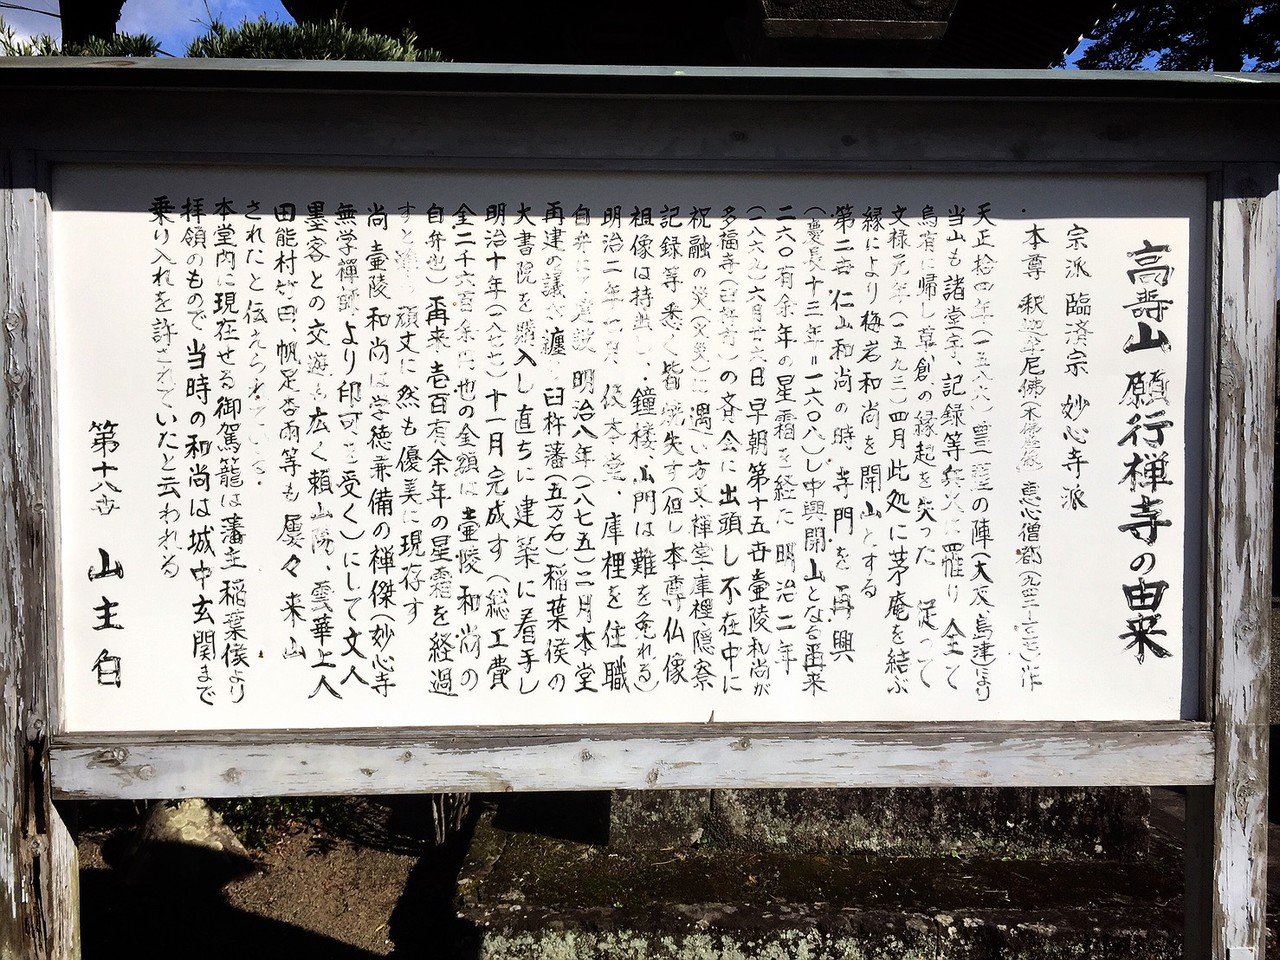 高壽山 願行禅寺の由来
宗派 臨済宗 妙心寺派
・本尊 釈迦牟尼佛(木佛坐像) 恵心僧都 作
天正拾四年(一五八六)豊薩の陣(大友島津)より
当山も諸堂宇、記録等兵火に罹り全て
烏有に帰し草創の縁起を失った 従って
文禄元年(一五九三)四月此処に茅庵を結ぶ
縁により梅岩和尚を開山とする
第二世 仁山和尚の時、寺門を再興
(慶長十三年=一六〇八)し中興開山となる再来
二六〇有余年の星霜を経に 明治二年
(一八六九)六月廿六日早朝第十五世壷陵和尚が
多福寺 の斉会に出頭し不在中に
祝融の災(火災)に遇い方丈、禅堂、庫裡、隠寮
記録等悉く皆焼失す(但し本尊仏像
祖像は持出し、鐘楼、山門は難を免れる)
明治二年 月 仮本堂、庫裡を住職
自弁にて建設 明治八年(一八七五)二月本堂
再建の議を纏 臼杵藩(五万石)稲葉侯の
大書院を購入し直ちに建築に着手し
明治十年(一八七七)十一月完成す(総工費
金二千六百余円也の金額は壷陵和尚の
自弁也)再来、壱百有余年の星霜を経過
すと 頑丈に然も優美に現存す
尚壷陵和尚は学徳兼備の禅傑(妙心寺
無学禅師より印可を受く)にして文人
墨客との交遊も広く頼山陽 雲華上人
田能村竹田、帆足杏雨等も屡々来山
されたと伝えられている・
本堂内に現在せる御駕籠は藩主稲葉侯より
拝領のもので当時の和尚は城中玄関まで
乗り入れを許されていたと云われる
第十八世 山主白